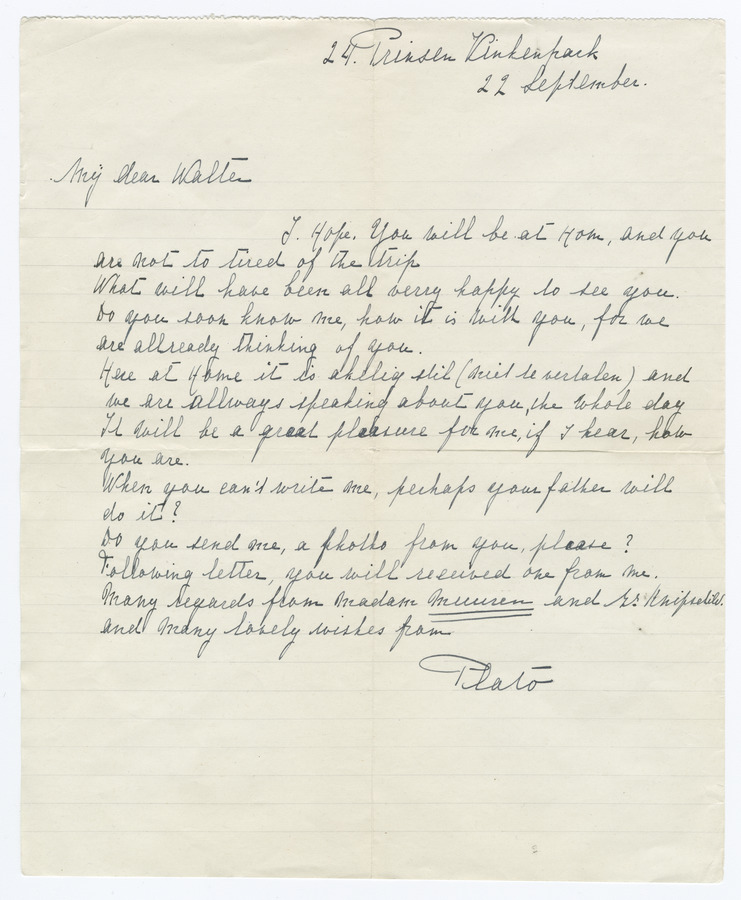 24. Prinsen Vinkenpark
22 September.
My dear Walter
I. Hope. You will be at Hom, and you
are not to tired of the trip
What will have been all verry happy to see you.
Do you soon know me, how it is with you, for we
are allready thinking of you.
Here at Home it is aklig stil (niet te vertalen) and
we are allways speaking about you, the whole day
It will be a great pleasure for me, if I hear, how
you are.
When you can't write me, perhaps your father will
do it?
Do you send me, a photho from you, please?
Following letter, you will received one from me.
Many regards from Madam and
and Many lovely wishes from
Plato